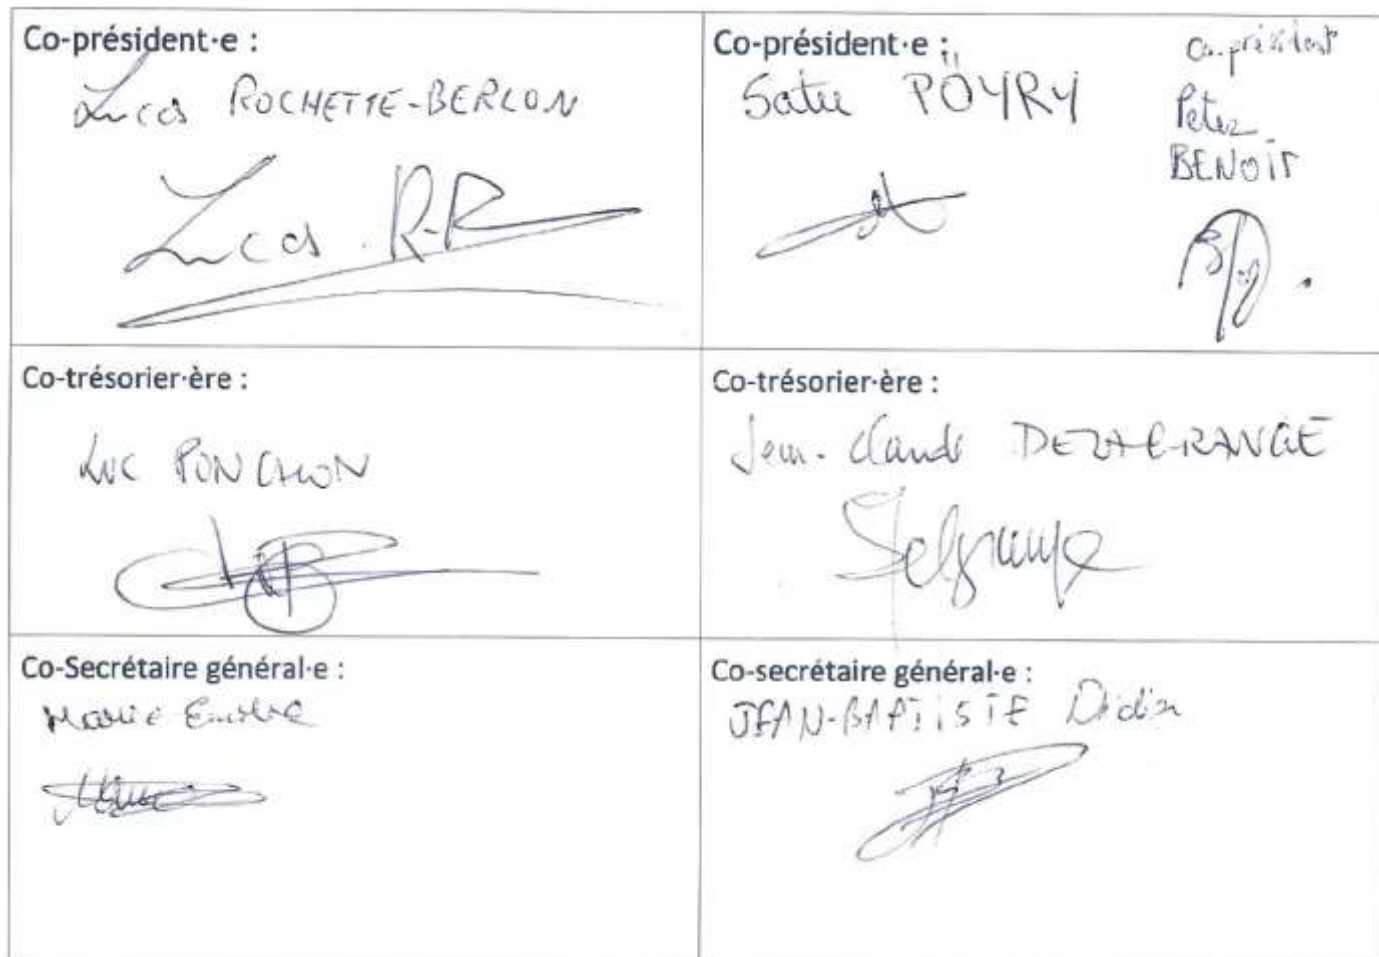 Co-président·e :
Lucas ROCHETTE-BERLON
Lucas R-B
Co-président·e :
Satu PÖYRY
Co-président
Peter
BENOIT
Co-trésorier·ère :
Luc PONCHON
Co-trésorier·ère :
Jean-Claude DELAGRANGE
Co-Secrétaire général·e :
Marie
Co-secrétaire général·e :
JEAN-BAPTISTE Didier